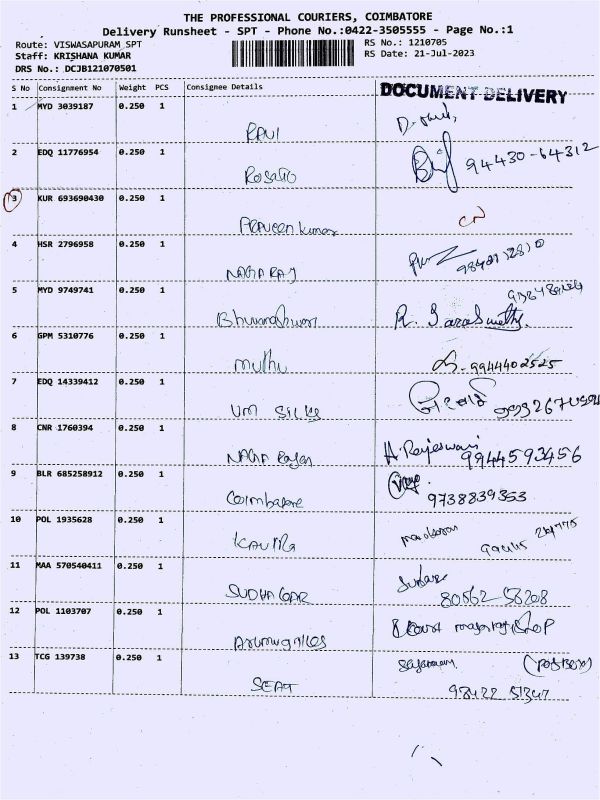 THE PROFESSIONAL COURIERS, COIMBATORE
Delivery Runsheet - SPT - Phone No.:0422-3505555 - Page No.:1
Route: VISWASAPURAM_SPT
RS No.: 1210705
Staff: KRISHANA KUMAR
RS Date: 21-Jul-2023
DRS No.: DCJB121070501
S No Consignment No Weight PCS Consignee Details
DOCUMENT DELIVERY
1 MYD 3039187 0.250 1
RAVI
2 EDQ 11776954 0.250 1
94430-64312
Rosario
3 KUR 693690430 0.250 1
CN
Praveen kumar
4 HSR 2796958 0.250 1
NAGARAJ
5 MYD 9749741 0.250 1
Bhuvaneshwari
R. Saraswathy
6 GPM 5310776 0.250 1
muthu
9944402525
7 EDQ 14339412 0.250 1
UM SILKS
8 CNR 1760394 0.250 1
A. Rajeswari
NAGA Rajan
9944593456
9 BLR 685258912 0.250 1
Coimbatore
9738839353
10 POL 1935628 0.250 1
manoharan
KAVITA
11 MAA 570540411 0.250 1
SUDHAGAR
80562 58208
12 POL 1103707 0.250 1
SHOP
13 TCG 139738 0.250 1
SEAT
98422 51347